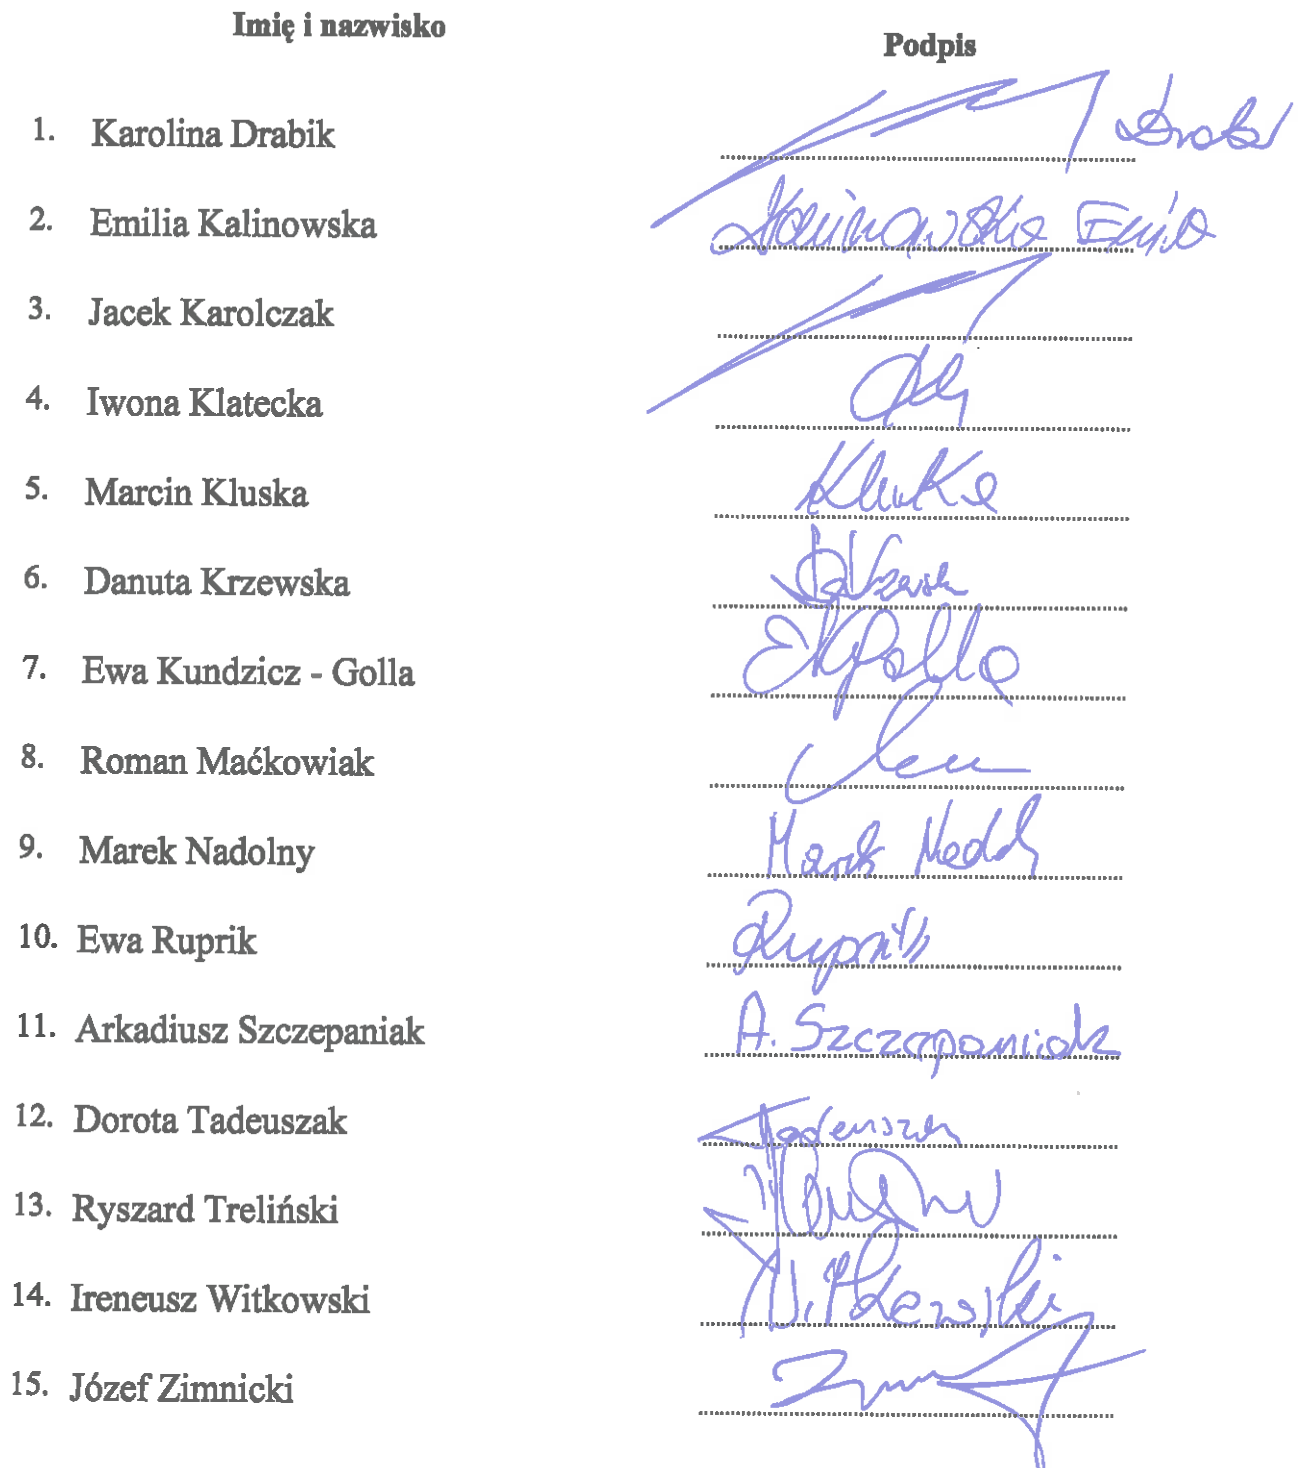 Imię i nazwisko
Podpis
1. Karolina Drabik
2. Emilia Kalinowska Kalinowska Emilia
3. Jacek Karolczak
4. Iwona Klatecka
5. Marcin Kluska
6. Danuta Krzewska
7. Ewa Kundzicz - Golla EKGolla
8. Roman Maćkowiak
9. Marek Nadolny Marek
10. Ewa Ruprik Ruprik
11. Arkadiusz Szczepaniak A. Szczepaniak
12. Dorota Tadeuszak Tadeuszak
13. Ryszard Treliński
14. Ireneusz Witkowski Witkowski
15. Józef Zimnicki